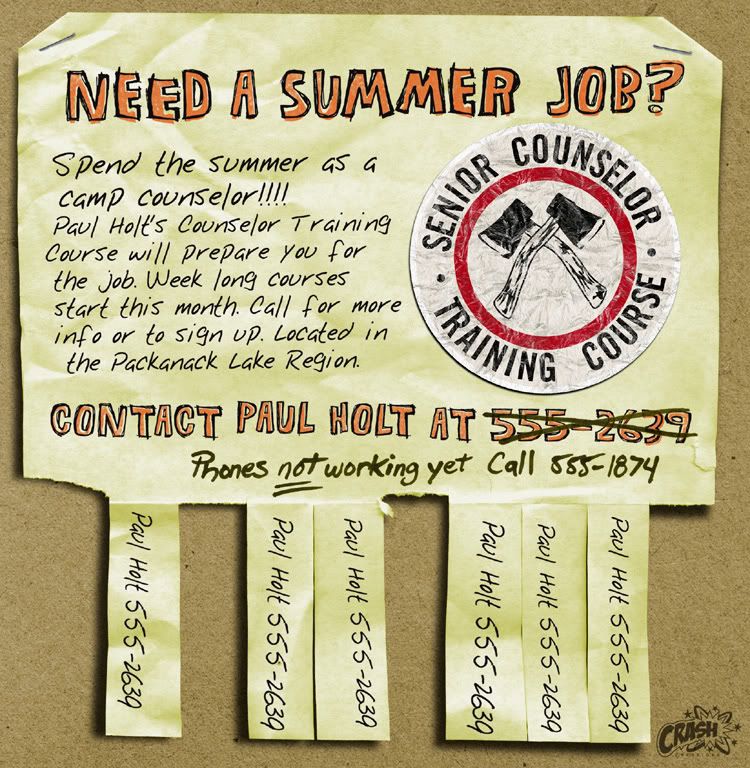 NEED A SUMMER JOB?
Spend the summer as a
camp counselor!!!!
Paul Holt's Counselor Training
Course will prepare you for
the job. Week long courses
start this month. Call for more
info or to sign up. Located in
the Packanack Lake Region.
SENIOR COUNSELOR
TRAINING COURSE
CONTACT PAUL HOLT AT 555-2639
Phones not working yet Call 555-1874
Paul Holt 555-2639
Paul Holt 555-2639
Paul Holt 555-2639
Paul Holt 555-2639
Paul Holt 555-2639
Paul Holt 555-2639
CRASH